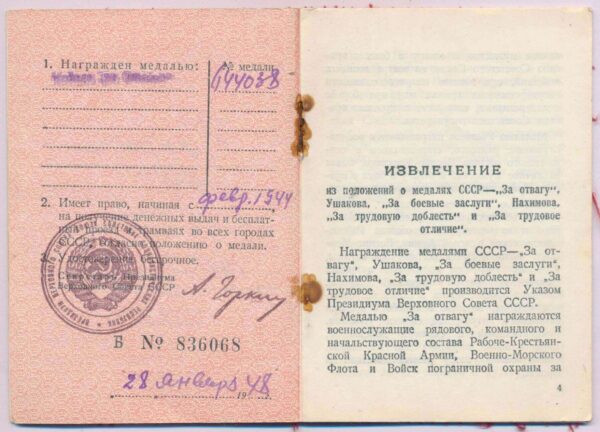 1. Награжден медалью:
№ медали
644038
2. Имеет право, начиная с февр. 1944
на получение денежных выдач и бесплат-
проезд трамваях во всех городах
СССР, согласно положению о медали.
Удостоверение срочное.
Секретарь Президиума
Верховного Совета СССР
А. Горкин
Б № 836068
28 января 1948.
ИЗВЛЕЧЕНИЕ
из положений о медалях СССР—„За отвагу“,
Ушакова, „За боевые заслуги“, Нахимова,
„За трудовую доблесть“ и „За трудовое
отличие“.
Награждение медалями СССР—„За от-
вагу“, Ушакова, „За боевые заслуги“,
Нахимова, „За трудовую доблесть“ и „За
трудовое отличие“ производится Указом
Президиума Верховного Совета СССР.
Медалью „За отвагу“ награждаются
военнослужащие рядового, командного и
начальствующего состава Рабоче-Крестьян-
ской Красной Армии, Военно-Морского
Флота и Войск пограничной охраны за
4